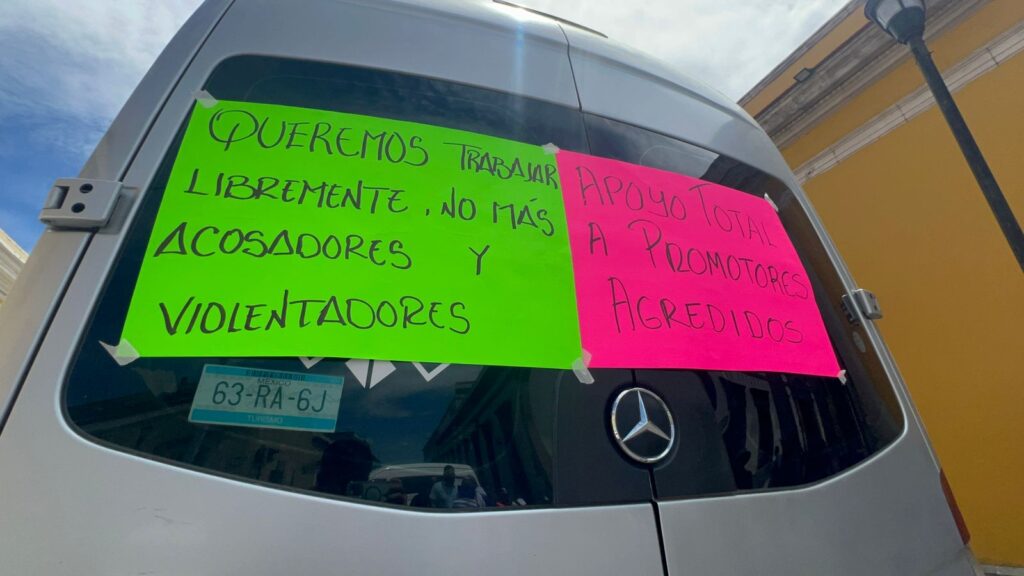 QUEREMOS TRABAJAR
LIBREMENTE, NO MÁS
ACOSADORES Y
VIOLENTADORES
APOYO TOTAL
A PROMOTORES
AGREDIDOS
MÉXICO
63-RA-6J
TURISMO